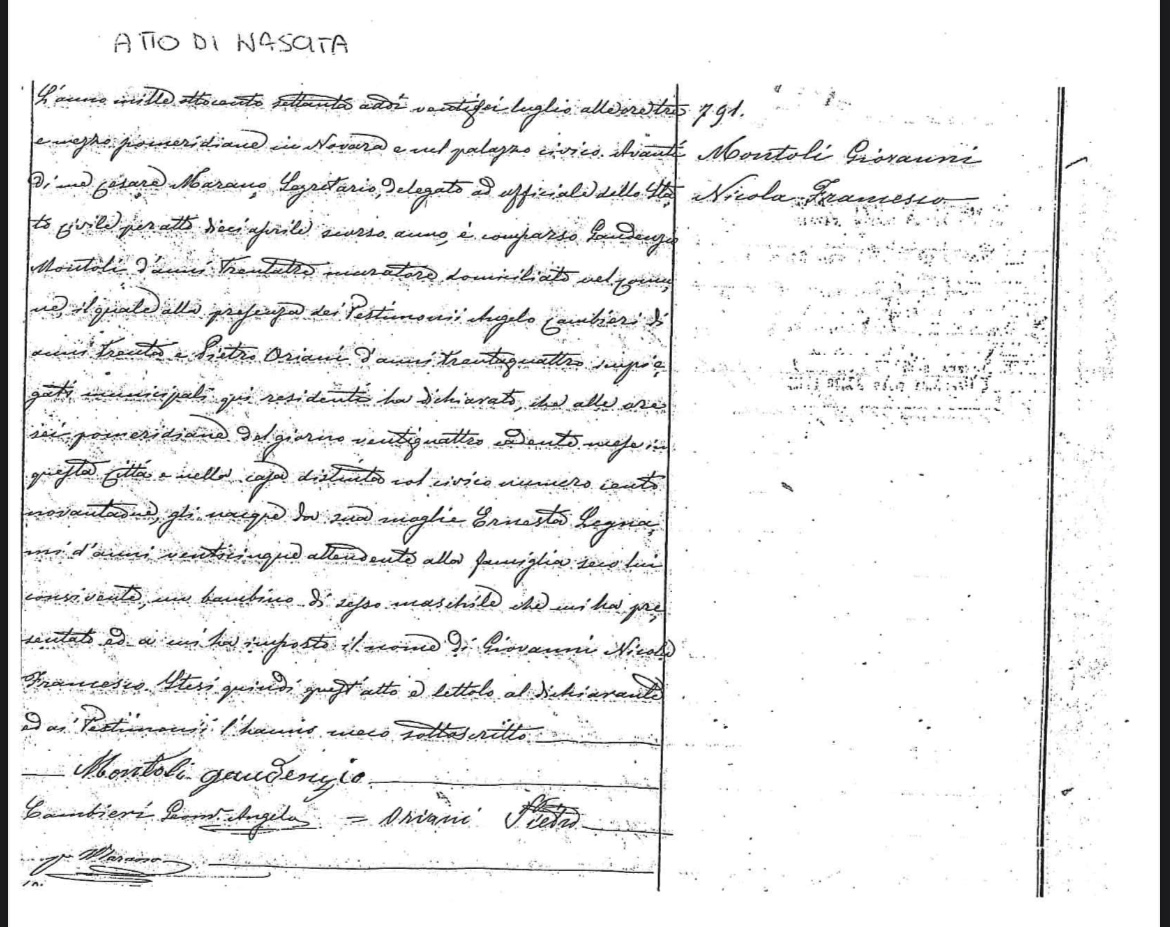 ATTO DI NASCITA
L'anno mille ottocento settanta addì ventisei luglio alle ore tre
e mezzo pomeridiane in Novara e nel palazzo civico. Avanti
di me Cesare Marano, Segretario, delegato ad officiale dello Sta
to Civile per atto dieci aprile scorso anno, è comparso Gaudenzio
Montoli d'anni trentatre muratore domiciliato nel comu
ne, il quale alla presenza dei Testimonii Angelo Cambieri di
anni trenta e Pietro Oriani d'anni trentaquattro impie
gati municipali qui residenti ha dichiarato, che alle ore
sei pomeridiane del giorno ventiquattro cadente mese in
questa Città e nella casa distinta col civico numero cento
novantadue, gli nacque da sua moglie Ernesta Legna
mi d'anni venticinque attendente alla famiglia seco lui
convivente, un bambino di sesso maschile che mi ha pre
sentato ed a cui ha imposto il nome di Giovanni Nicola
Francesco. Stesi quindi quest'atto e lettolo al dichiarante
ed ai Testimonii l'hanno meco sottoscritto
Montoli gaudenzio
Cambieri Angelo = Oriani Pietro
Marano
791.
Montoli Giovanni
Nicola Francesco